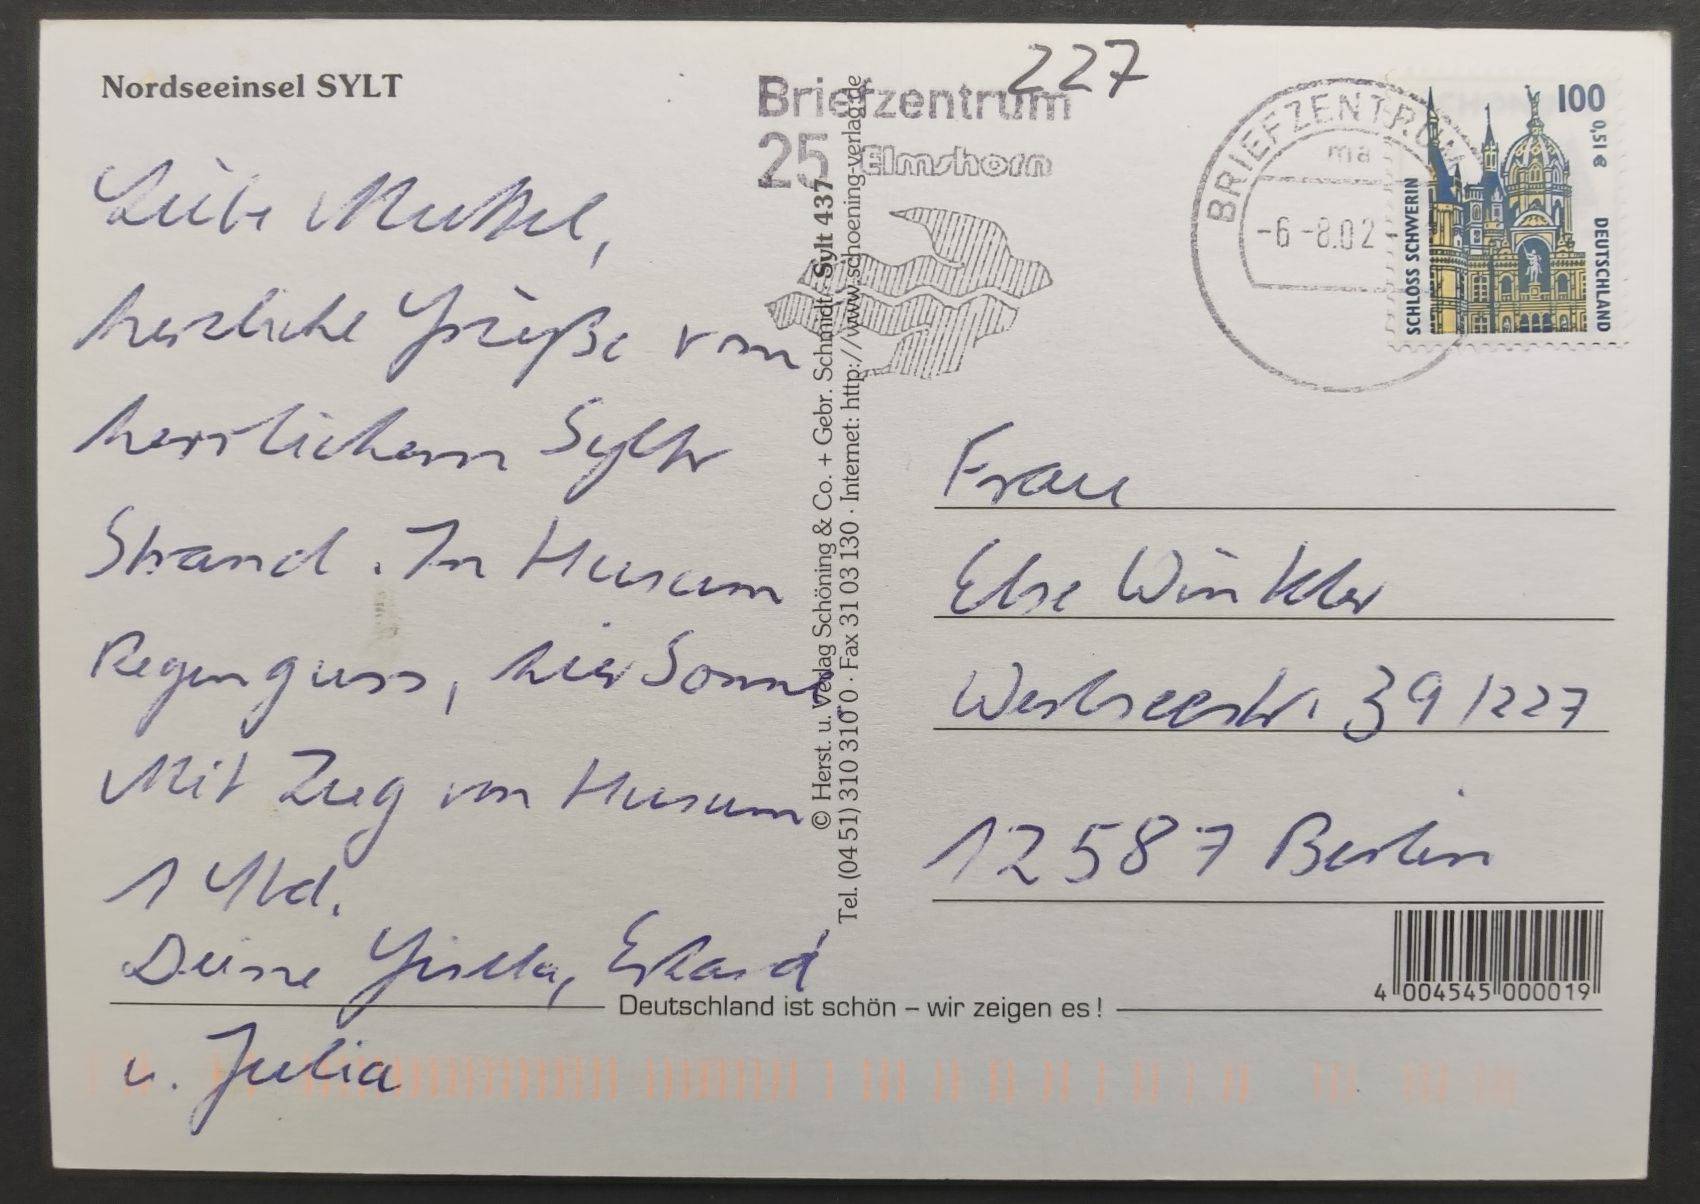 Nordseeinsel SYLT
Liebe
herzliche Grüße vom
herrlichem Sylter
Strand. In Husum
Regenguss, hier Sonne
Mit Zug von Husum
1 Std.
Deine Gisela, Erhard
u. Julia
Briefzentrum
25 Elmshorn
227
BRIEFZENTRUM
ma
-6-8.02
100
0,51 €
SCHLOSS SCHWERIN
DEUTSCHLAND
© Herst. u. Verlag Schöning & Co. + Gebr. Schmidt · Sylt 437
Tel. (04 51) 310 310 · Fax 31 03 130 · Internet: http://www.schoening-verlag.de
Frau
Else Winkler
39/227
12587 Berlin
4 004545 000019
Deutschland ist schön – wir zeigen es !